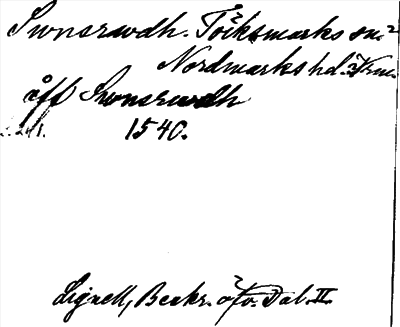 Swnsrwdh. Töcksmarks sn.
Nordmarks hd. Vrm.
åff Swnsrwdh
1540.
Lignell, Beskr. öfv. Dal. II.